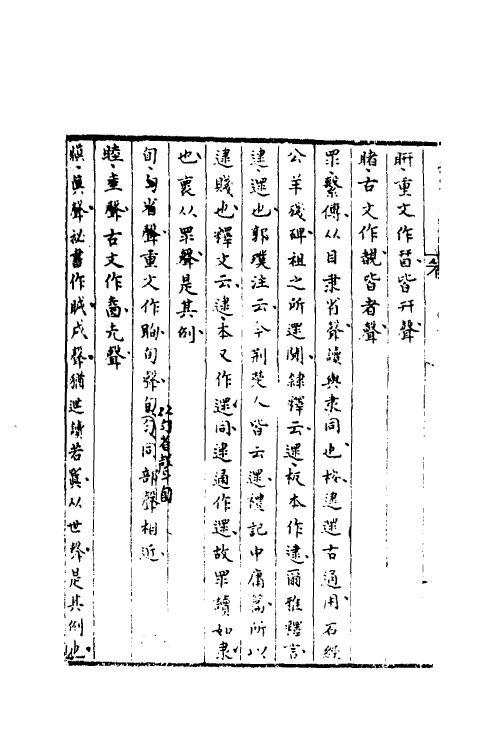 盰重文作𥄳皆幵聲
睹古文作覩皆者聲
眔繫傳从目隶省聲讀與隶同也按逮遝古通用石經
公羊殘碑祖之所遝聞隸釋云遝板本作逮爾雅釋言
逮遝也郭璞注云今荊楚人皆云遝禮記中庸篇所以
逮賤也釋文云逮本又作遝同逮通作遝故眔讀如隶
也褱从眔聲是其例
旬勻省聲重文作眴旬聲旬勻同部聲相近
勻省聲
睦坴聲古文作𡍬圥聲
瞋真聲祕書作䀕戌聲猶
讀若 从世聲是其例也